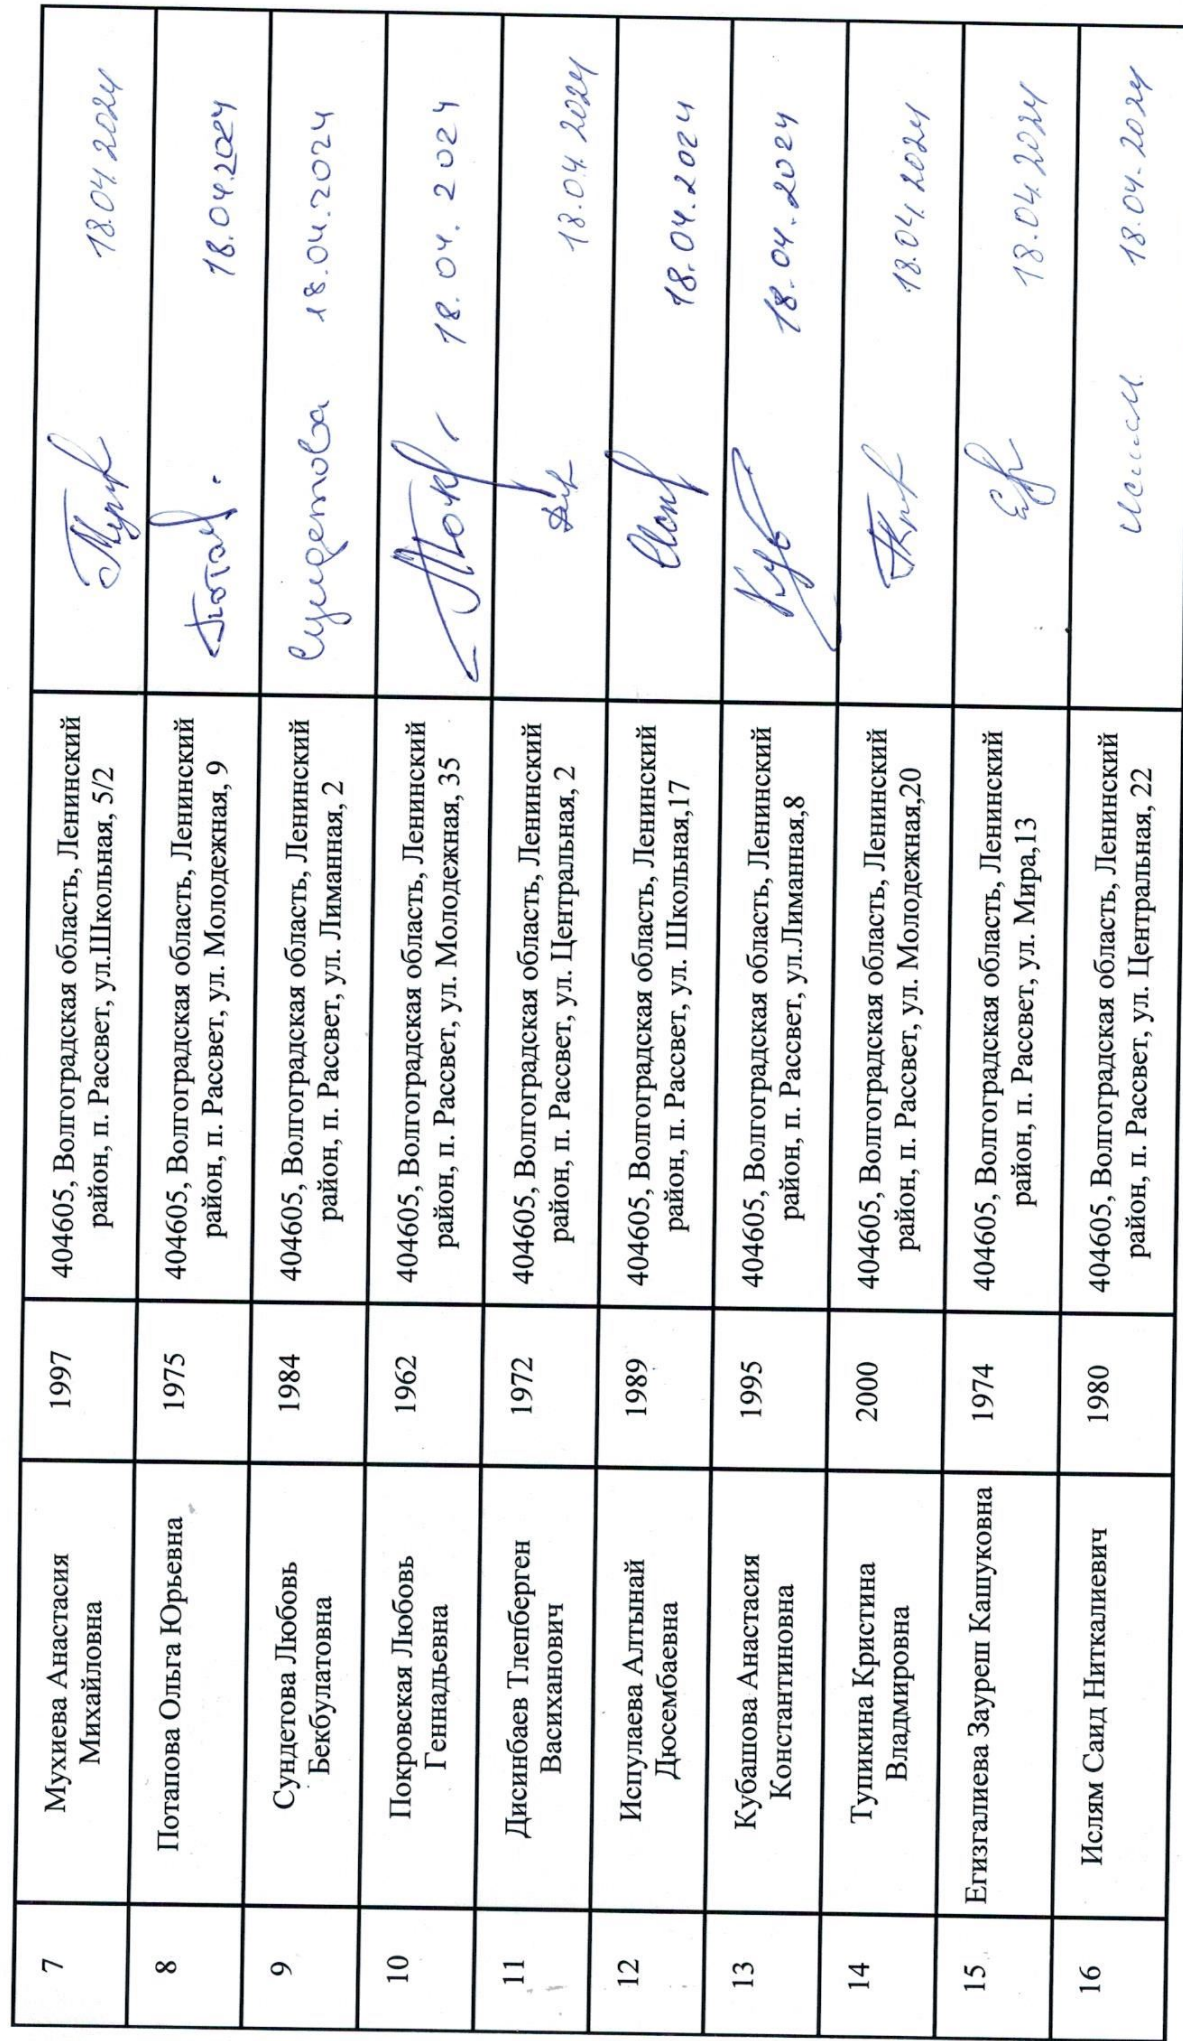 7
Мухиева Анастасия
Михайловна
1997
404605, Волгоградская область, Ленинский
район, п. Рассвет, ул.Школьная, 5/2
18.04.2024
8
Потапова Ольга Юрьевна
1975
404605, Волгоградская область, Ленинский
район, п. Рассвет, ул. Молодежная, 9
18.04.2024
9
Сундетова Любовь
Бекбулатовна
1984
404605, Волгоградская область, Ленинский
район, п. Рассвет, ул. Лиманная, 2
Сундетова 18.04.2024
10
Покровская Любовь
Геннадьевна
1962
404605, Волгоградская область, Ленинский
район, п. Рассвет, ул. Молодежная, 35
18.04.2024
11
Дисинбаев Тлепберген
Васиханович
1972
404605, Волгоградская область, Ленинский
район, п. Рассвет, ул. Центральная, 2
18.04.2024
12
Испулаева Алтынай
Дюсембаевна
1989
404605, Волгоградская область, Ленинский
район, п. Рассвет, ул. Школьная,17
18.04.2024
13
Кубашова Анастасия
Константиновна
1995
404605, Волгоградская область, Ленинский
район, п. Рассвет, ул.Лиманная,8
18.04.2024
14
Тупикина Кристина
Владмировна
2000
404605, Волгоградская область, Ленинский
район, п. Рассвет, ул. Молодежная,20
18.04.2024
15
Егизгалиева Зауреш Кашуковна
1974
404605, Волгоградская область, Ленинский
район, п. Рассвет, ул. Мира,13
18.04.2024
16
Ислям Саид Ниткалиевич
1980
404605, Волгоградская область, Ленинский
район, п. Рассвет, ул. Центральная, 22
18.04.2024